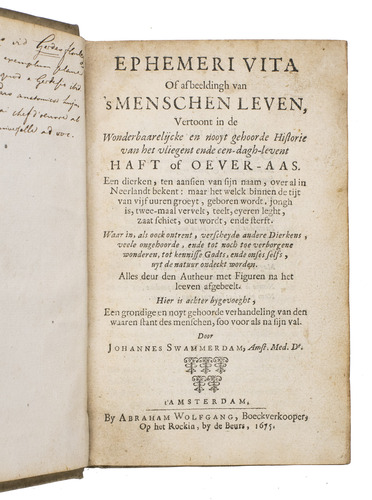 EPHEMERI VITA
Of afbeeldingh van
's MENSCHEN LEVEN,
Vertoont in de
Wonderbaarelijcke en nooyt gehoorde Historie
van het vliegent ende een-dagh-levent
HAFT of OEVER-AAS.
Een dierken, ten aansien van sijn naam, over al in
Neerlandt bekent: maar het welck binnen de tijt
van vijf uuren groeyt, geboren wordt, jongh
is, twee-maal vervelt, teelt, eyeren leght,
zaat schiet, out wordt, ende sterft.
Waar in, als oock ontrent, verscheyde andere Dierkens,
veele ongehoorde, ende tot noch toe verborgene
wonderen, tot kennisse Godts, ende onses selfs,
uyt de natuur ondeckt worden.
Alles deur den Autheur met Figuren na het
leeven afgebeelt.
Hier is achter bygevoeght,
Een grondige en noyt gehoorde verhandeling van den
waaren stant des menschen, soo voor als na sijn val.
Door
JOHANNES SWAMMERDAM, Amst. Med. Dr.
t'AMSTERDAM,
By ABRAHAM WOLFGANG, Boeckverkooper,
Op het Rockin, by de Beurs, 1675.